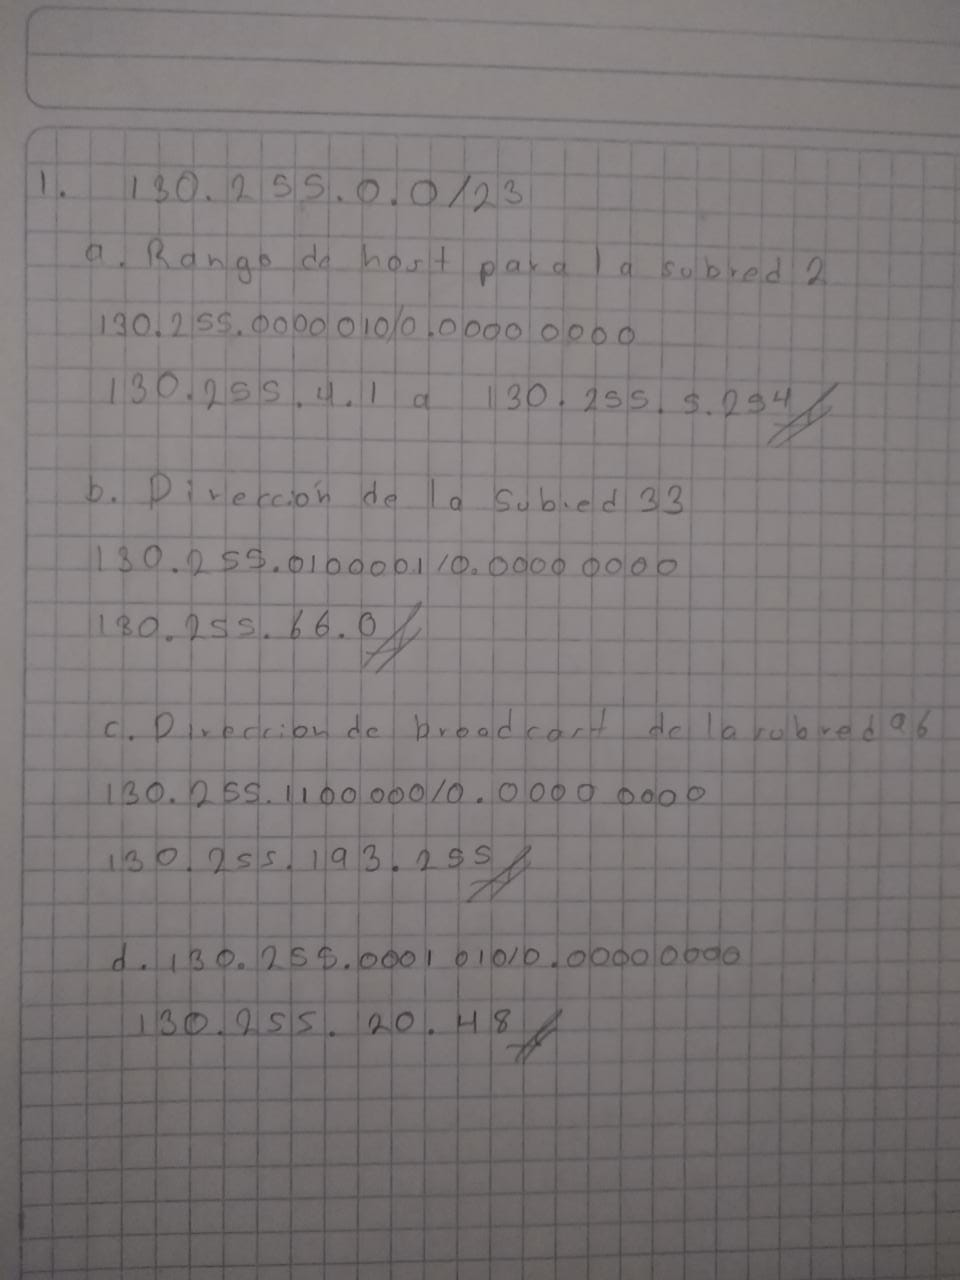 1. 130.255.0.0/23
a. Rango de host para la subred 2
130.255.0000010/0.0000 0000
130.255.4.1 a 130.255.5.254
b. Dirección de la Subred 33
130.255.0100001/0.0000 0000
130.255.66.0
c. Direccion de broadcast de la subred 96
130.255.1100000/0.0000 0000
130.255.193.255
d. 130.255.0001010/0.00000000
130.255.20.48